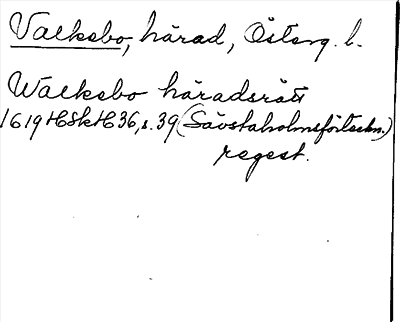 Valkebo, härad, Österg. l.
Walkebo häradsrätt
1619 HSkH 36, s. 39 (Sävstaholmsförteckn.)
regest.